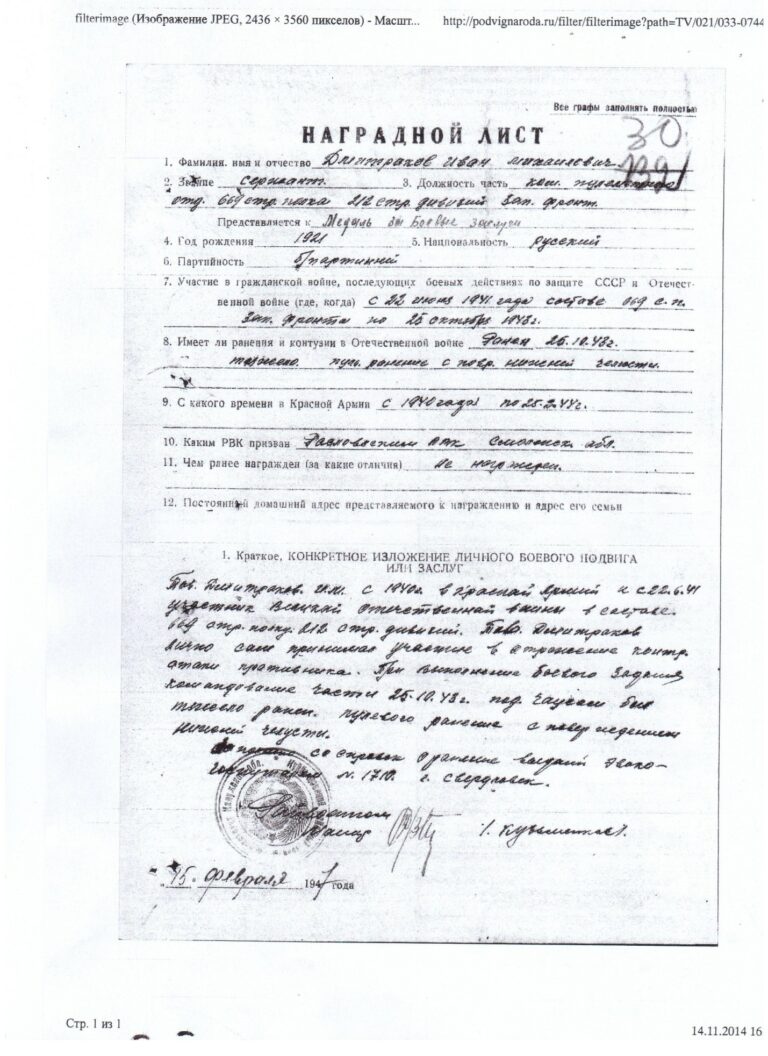 filterimage (Изображение JPEG, 2436 × 3560 пикселов) - Масшт... http://podvignaroda.ru/filter/filterimage?path=TV/021/033-0744
Все графы заполнять полностью
30
НАГРАДНОЙ ЛИСТ
1. Фамилия, имя и отчество Дмитраков Иван Михаилович
2. Звание сержант. 3. Должность часть ком. пулеметного
отд. 669 стр. полка 212 стр. дивизий Зап. фронт.
Представляется к Медаль За Боевые заслуги
4. Год рождения 1921 5. Национальность русский
6. Партийность б/партийний
7. Участие в гражданской войне, последующих боевых действиях по защите СССР и Отечест-
венной войне (где, когда) с 22 июня 1941 года составе 669 с.п.
Зап. Фронта по 25 октября 1943г.
8. Имеет ли ранения и контузии в Отечественной войне Ранен 25.10.43г.
тяжело. пул. ранение с повр. нижней челюсти.
9. С какого времени в Красной Армии с 1940 года по 25.2.44г.
10. Каким РВК призван Рославльским РВК Смоленск. обл.
11. Чем ранее награжден (за какие отличия) не награжден.
12. Постоянный домашний адрес представляемого к награждению и адрес его семьи
1. Краткое, КОНКРЕТНОЕ ИЗЛОЖЕНИЕ ЛИЧНОГО БОЕВОГО ПОДВИГА
ИЛИ ЗАСЛУГ
Тов. Дмитраков И.М. с 1940г. в Красной Армий и с 22.6.41
участник Великий Отечественной войны в составе
669 стр. полку 212 стр. дивизий. Тов. Дмитраков
лично сам принимал участие в отражение контр
атаки противника. При выполнение боевого задания
командование части 25.10.43г. под. Чаусам был
тяжело ранен. пулевого ранение с повреждением
нижней челусти.
со справок о ранение выдании эвако-
госпиталем N. 1710. г. Свердловск.
Райвоенком
15. февраля 1947 года
Стр. 1 из 1
14.11.2014 16